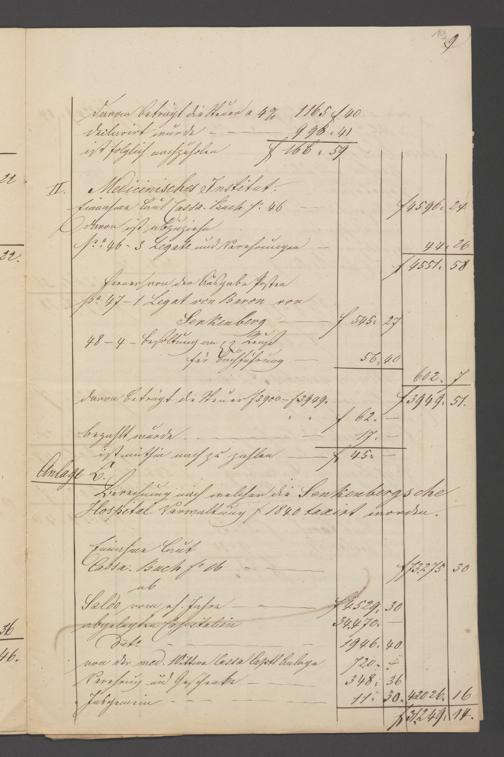 9
davon beträgt die Steuer a 4% 1165 f 40
declarirt wurde - - - 998 . 41
ist folglich nachzuholen f 166 . 59
II. Medicinisches Institut.
Einnahme laut Cassa Buch fo. 46 - f 4596. 24
davon ist abzuziehn
fo. 46 - 3 Legate und Verehrungen - 44. 26
f 4551. 58
ferner von den Ausgabe Posten
fo. 47 - 1 Legat von Baron von
Senkenberg - f 545. 27
48 - 4 - Besoldung an
für Buchführung - 56. 40
602. 7
davon beträgt die Steuer f 3900 - f 3949. f 3949. 51.
f 62. -
bezahlt wurde - 17. -
ist mithin nach zu zahlen - f 45. -
Anlage C.
Berechnung nach welcher die Senkenbergsche
Hospital Verwaltung p 1840 taxirt worden.
Einnahme laut
Cassa Buch fo. 16 - f 73275 30
ab
Saldo vom v. Jahre - f 4529. 30
abgelegten Capitalien 34470. -
Dto - 1946. 40
von der med. Wittwe Cassa 720. -
Verehrung und Geschenke 348. 36
Insgemein - 11. 30. 42026. 16
f 31249. 14.
22.
22.
36
46.